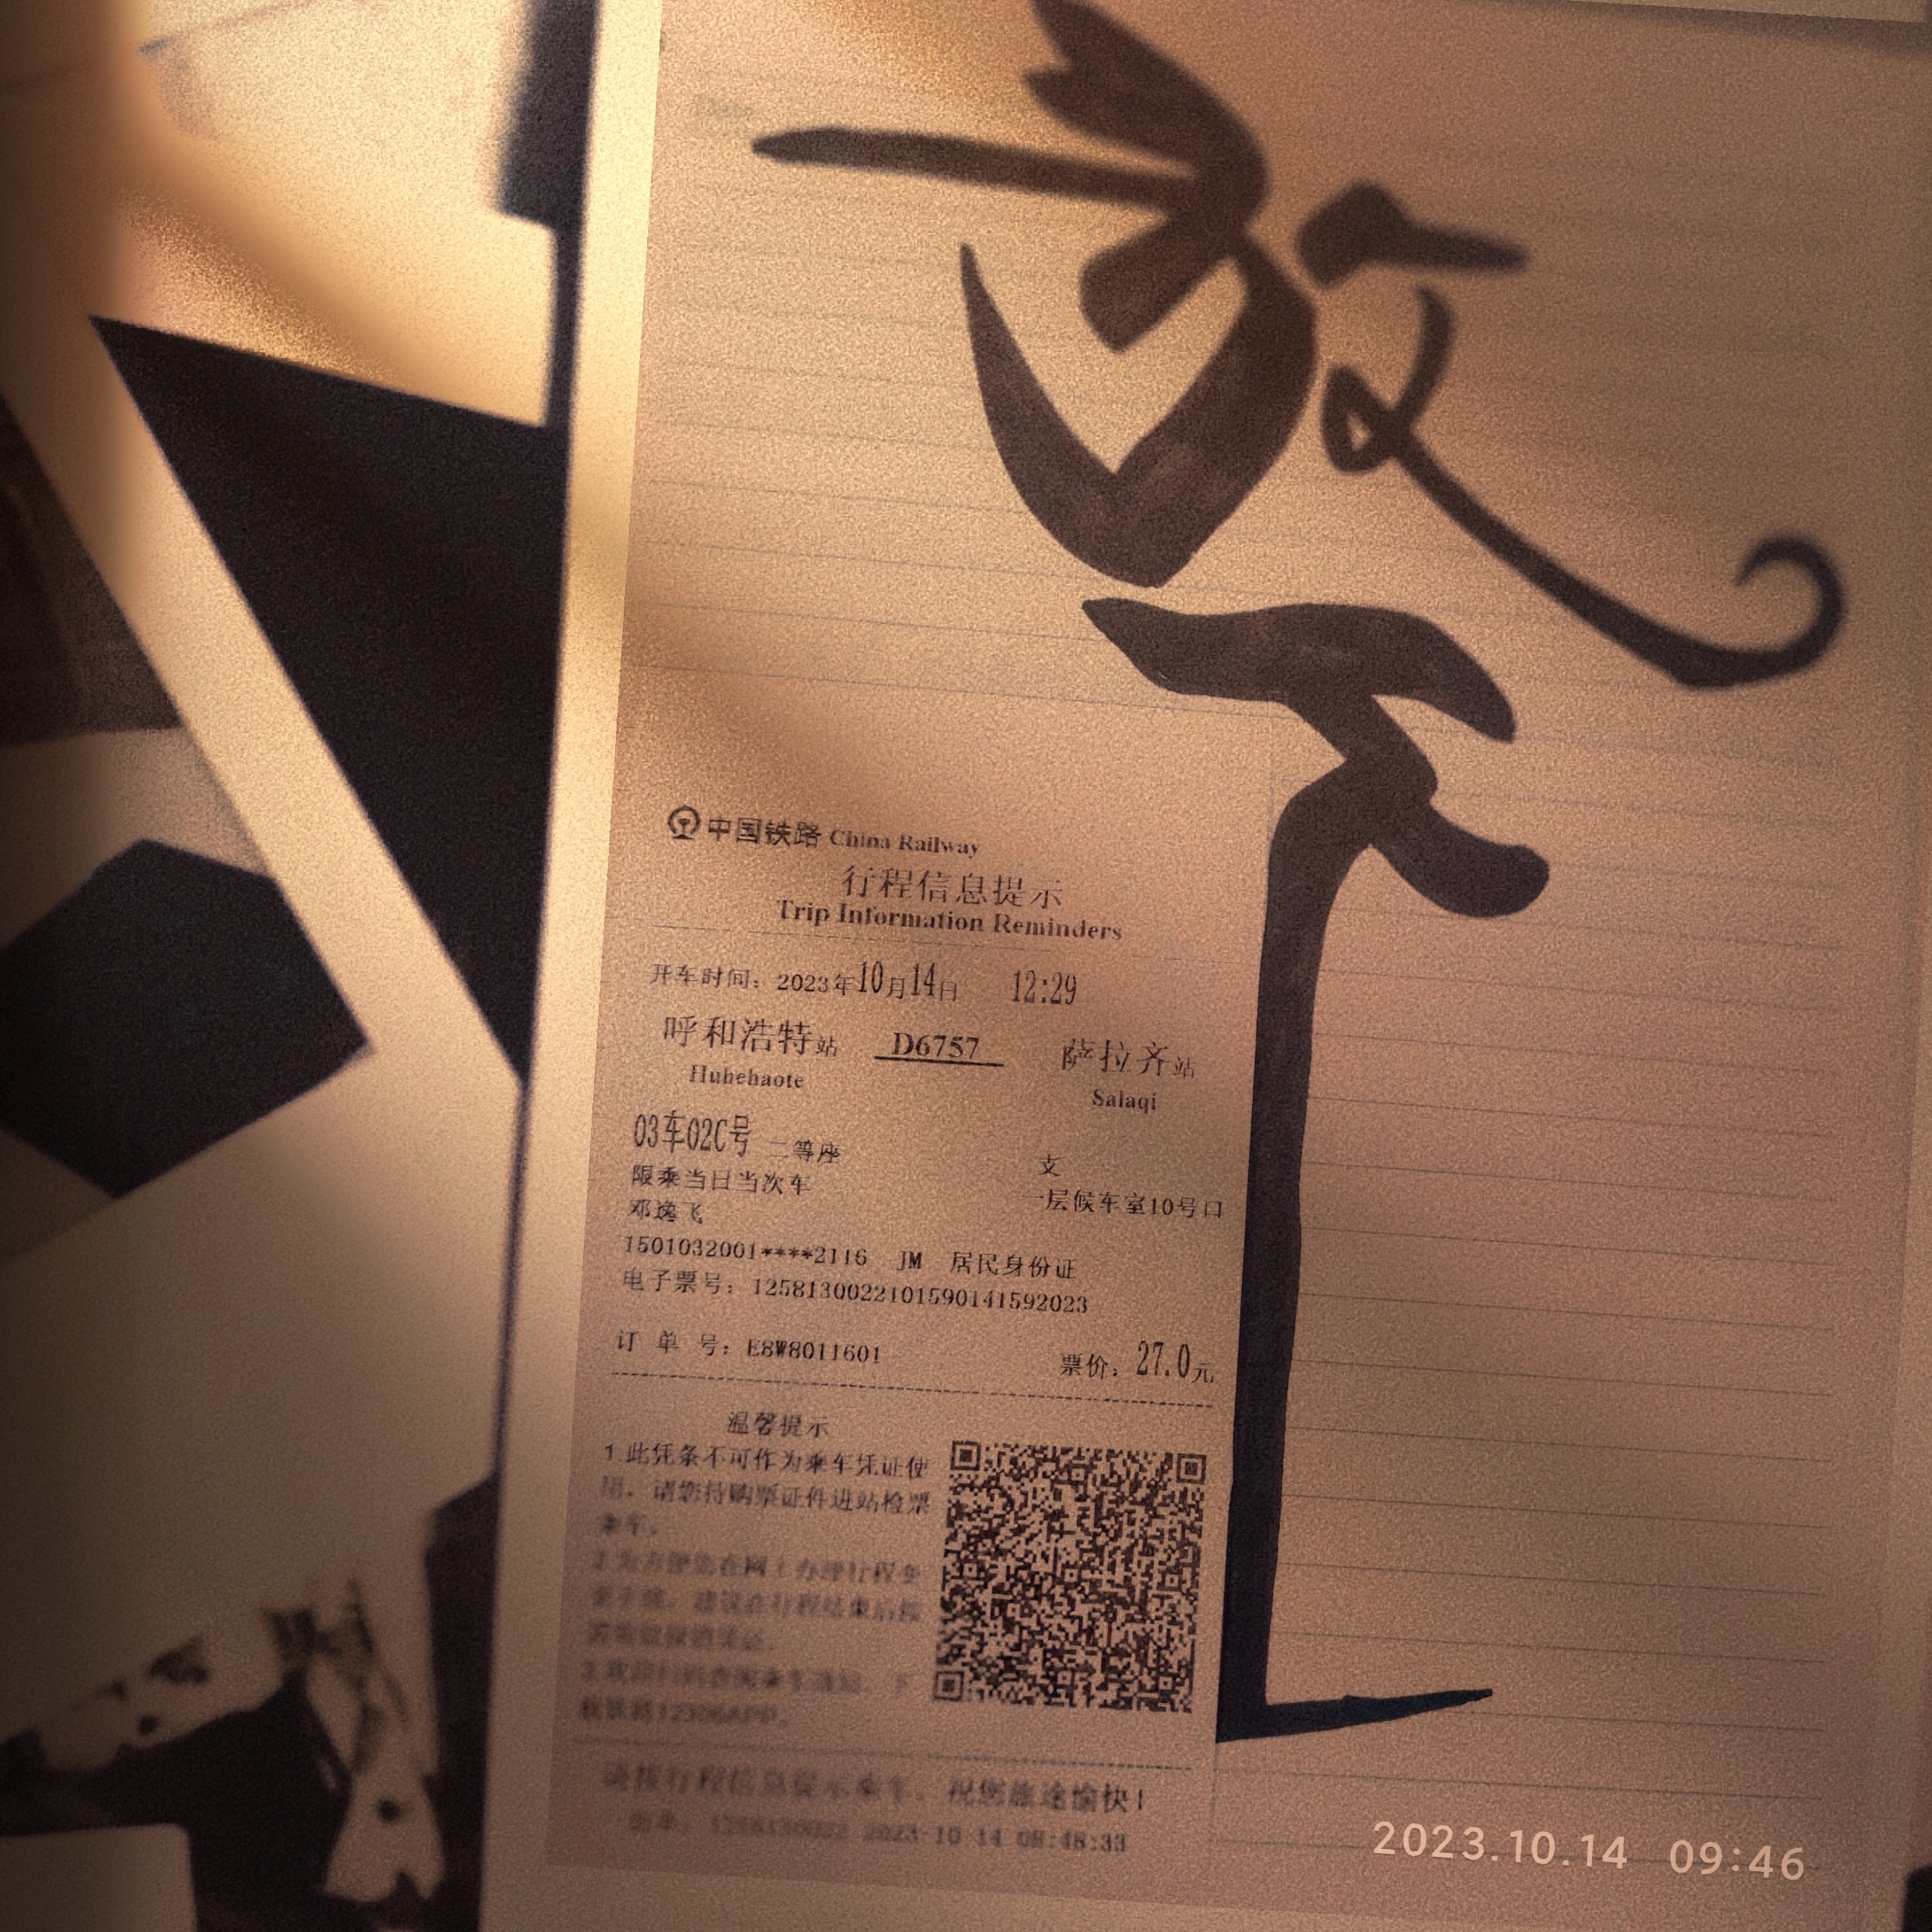 放下
中国铁路 China Railway
行程信息提示
Trip Information Reminders
开车时间：2023年10月14日 12:29
呼和浩特站 D6757 萨拉齐站
Huhehaote Salaqi
03车02C号 二等座 支
限乘当日当次车 一层候车室10号口
邓逸飞
1501032001****2116 JM 居民身份证
电子票号：1258130022101590141592023
订 单 号：E8W8011601 票价：27.0元
温馨提示
1.此凭条不可作为乘车凭证使
用，请您持购票证件进站检票
乘车。
2.为方便您在网上办理行程变
更手续，建议在行程结束后按
下
载铁路12306APP。
请按行程信息提示乘车，祝您旅途愉快！
2023-10-14 08:48:33
2023.10.14 09:46